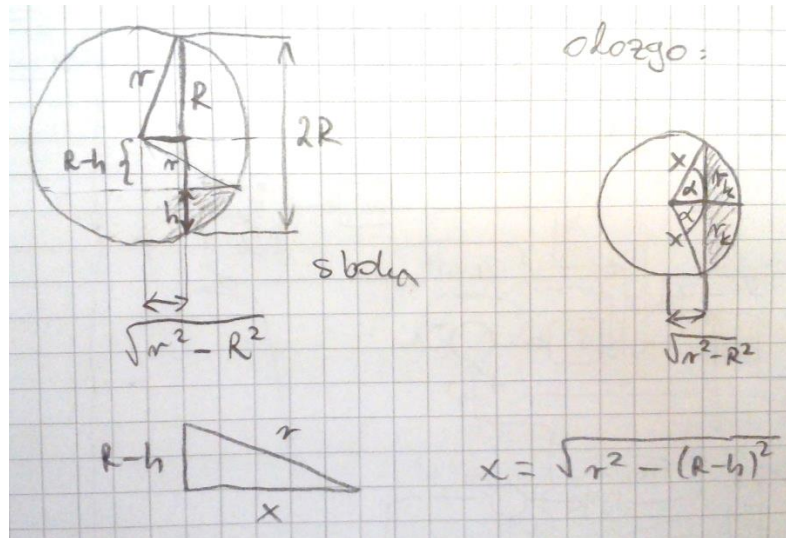 odozgo:
r
R
2R
R-h {
r
h
x
α
r_k
α
x
r_k
s boka
√r² - R²
√r² - R²
R-h
r
x
x = √r² - (R-h)²